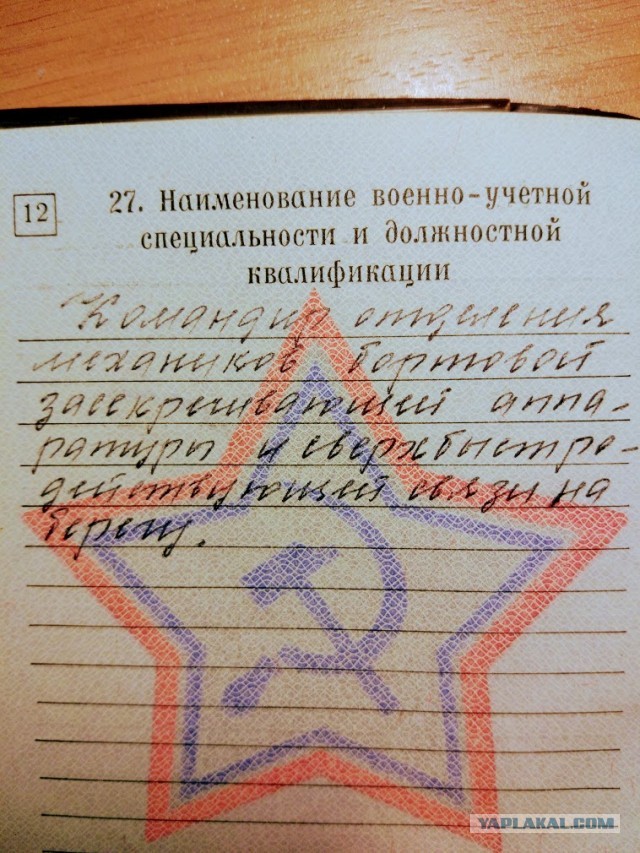 12
27. Наименование военно-учетной
специальности и должностной
квалификации
Командир отделения
механиков бортовой
засекречивающей аппа-
ратуры и сверхбыстро-
действующей связи на
берегу.
YAPLAKAL.COM